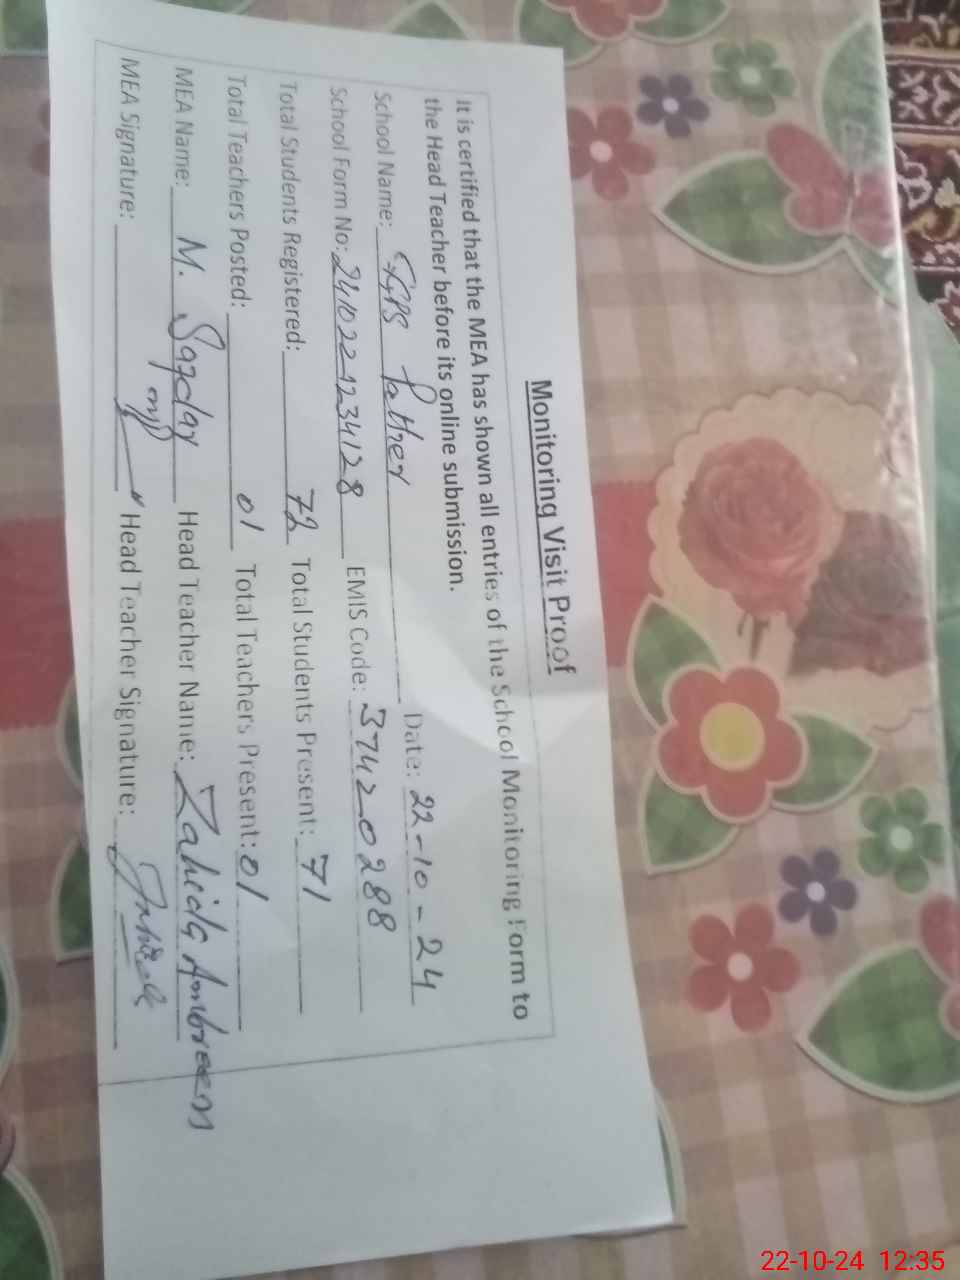 Monitoring Visit Proof
It is certified that the MEA has shown all entries of the School Monitoring Form to
the Head Teacher before its online submission.
School Name: GGPS Pather Date: 22-10-24
School Form No: 2410221234128 EMIS Code: 37420288
Total Students Registered: 72 Total Students Present: 71
Total Teachers Posted: 01 Total Teachers Present: 01
MEA Name: M. Safdar Head Teacher Name: Zahida Ambreen
MEA Signature: Head Teacher Signature:
22-10-24 12:35